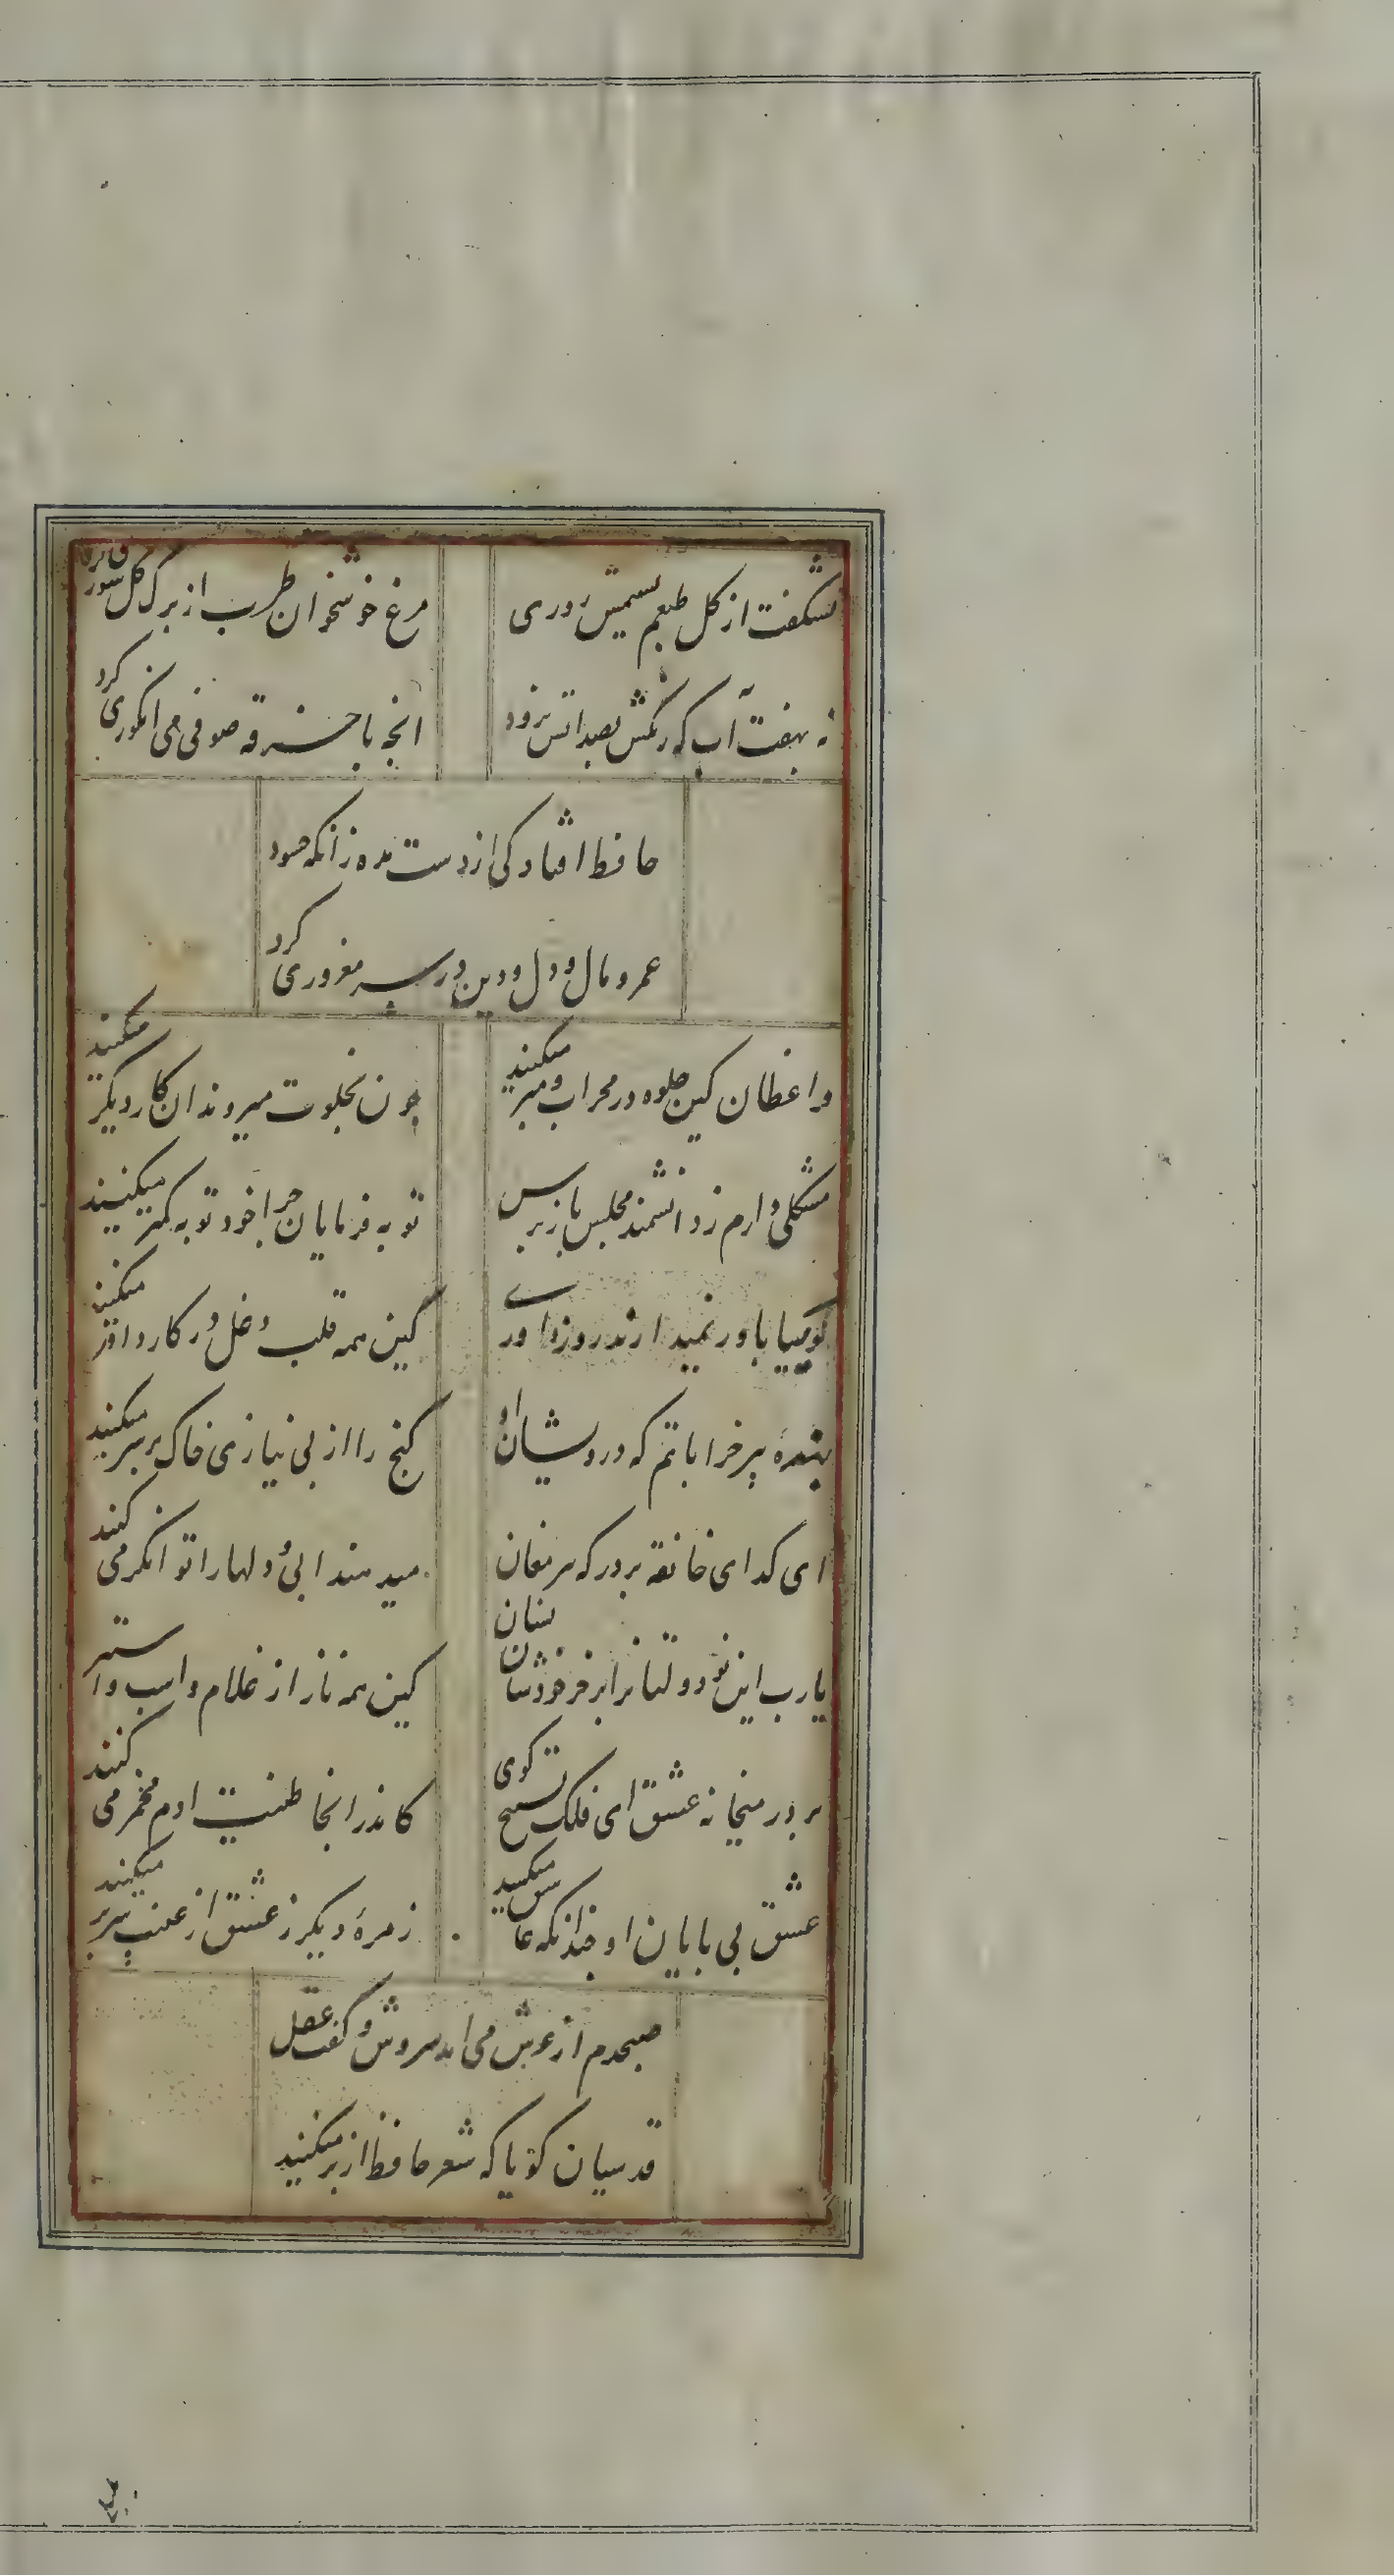 نشکفت از گل طبعم نسیمش روزی
مرغ خوشخوان طرب از برک گل سوری کرد
نه بهفت آب که رنکش بصد اتش نرود
انچه با خرقه صوفی می انکوری کرد
حافظ افتادکی از دست مده زانکه حسود
عمر و مال و دل و دین در سر مغروری کرد
واعظان کین جلوه در محراب و منبر میکنند
چون بخلوت میروند ان کار دیکر میکنند
مشکلی دارم ز دانشمند مجلس باز پرس
توبه فرمایان چرا خود توبه کمتر میکنند
کوییا باور نمیدارند روز داوری
کین همه قلب و دغل در کار داور میکنند
بنده پیر خراباتم که درویشان او
کنج را از بی نیازی خاک بر سر میکنند
ای کدای خانقه بر در که پیر مغان
میدهند ابی و دلها را توانکر می کنند
یا رب این نو دولتانرا بر خر خودشان نشان
کین همه ناز از غلام و اسب و استر کنند
بر در میخانه عشق ای فلک تسبیح کوی
کاندر انجا طینت ادم مخمر می کنند
عشق بی پایان او چندانکه عاشق میکشد
زمره دیکر ز عشق از غیب سر بر میکنند
صبحدم از عرش می امد سروش و کفت عقل
قدسیان کویا که شعر حافظ از بر میکنند